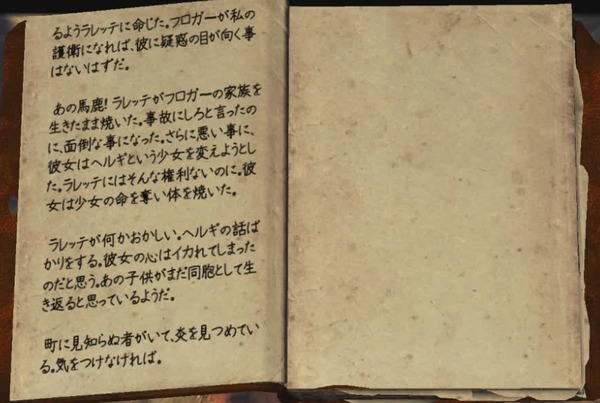 るようラレッテに命じた。フロガーが私の
護衛になれば、彼に疑惑の目が向く事
はないはずだ。
あの馬鹿！ラレッテがフロガーの家族を
生きたまま焼いた。事故にしろと言ったの
に、面倒な事になった。さらに悪い事に、
彼女はヘルギという少女を変えようとし
た。ラレッテにはそんな権利ないのに。彼
女は少女の命を奪い体を焼いた。
ラレッテが何かおかしい。ヘルギの話ば
かりをする。彼女の心はイカれてしまった
のだと思う。あの子供がまだ同胞として生
き返ると思っているようだ。
町に見知らぬ者がいて、炎を見つめてい
る。気をつけなければ。